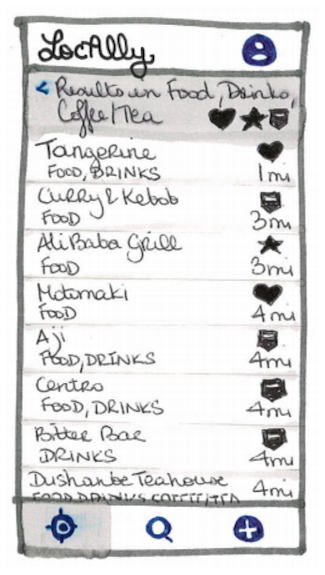 LocAlly
Results in Food, Drinks,
Coffee/Tea
Tangerine
FOOD, DRINKS
1mi
Curry & Kebob
FOOD
3mi
Ali Baba Grill
FOOD
3mi
Motomaki
FOOD
4mi
Aji
FOOD, DRINKS
4mi
Centro
FOOD, DRINKS
4mi
Bitter Bar
DRINKS
4mi
Dushanbe Teahouse
4mi
FOOD, DRINKS, COFFEE/TEA